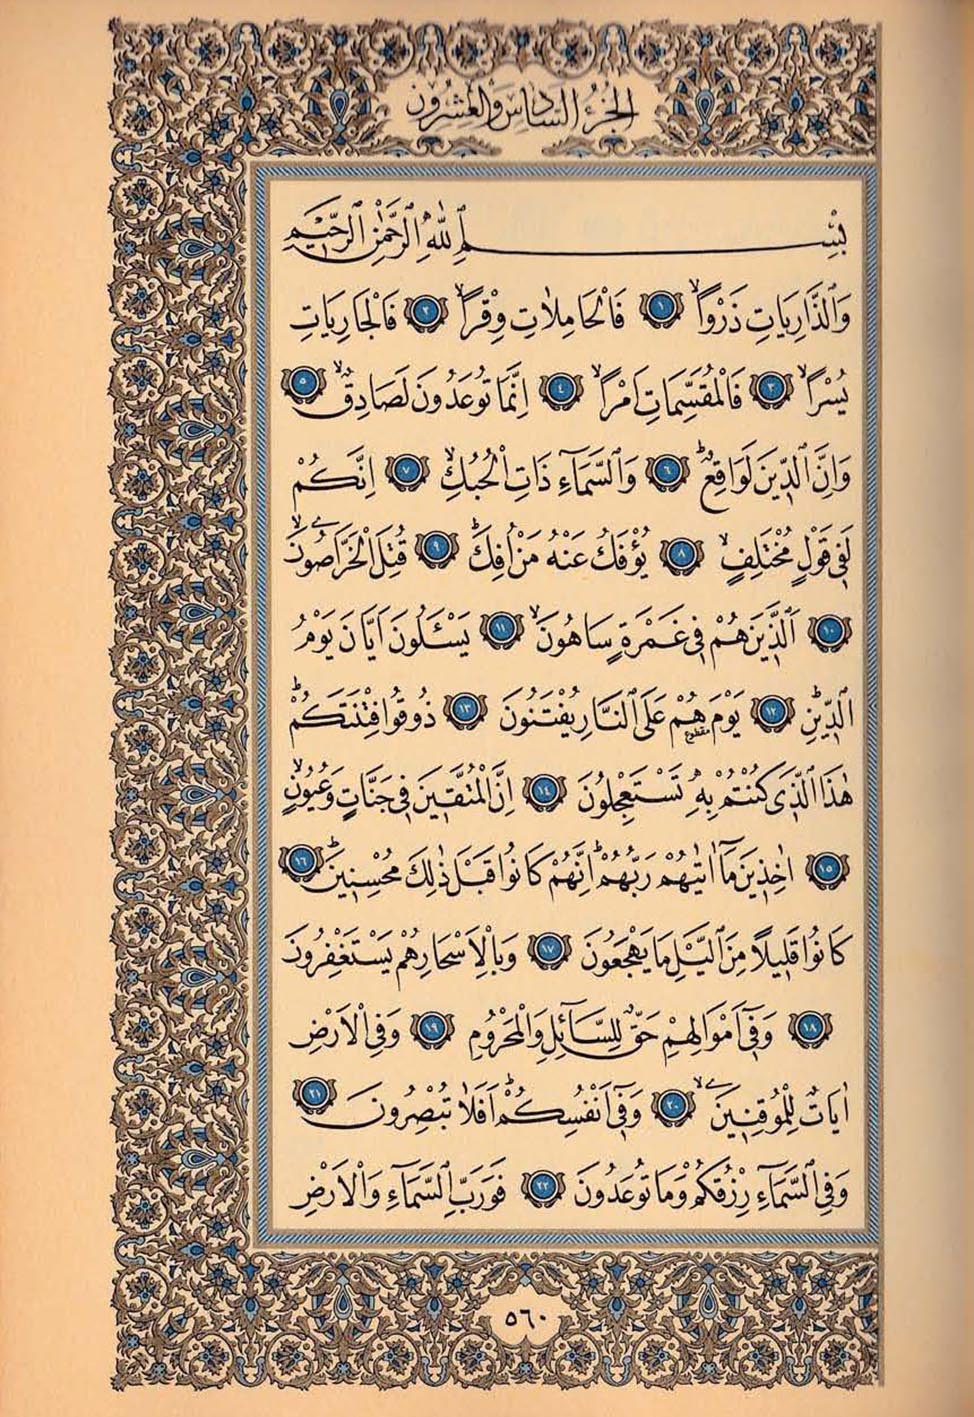 الجزء السادس والعشرون
بِسْمِ ٱللّٰهِ ٱلرَّحْمٰنِ ٱلرَّحِيمِ
وَٱلذَّارِيَاتِ ذَرْوًاۙ ﴿١﴾ فَالْحَامِلَاتِ وِقْرًاۙ ﴿٢﴾ فَالْجَارِيَاتِ
يُسْرًاۙ ﴿٣﴾ فَالْمُقَسِّمَاتِ اَمْرًاۙ ﴿٤﴾ اِنَّمَا تُوعَدُونَ لَصَادِقٌۙ ﴿٥﴾
وَاِنَّ ٱلدّ۪ينَ لَوَاقِعٌۜ ﴿٦﴾ وَٱلسَّمَٓاءِ ذَاتِ الْحُبُكِۙ ﴿٧﴾ اِنَّكُمْ
لَف۪ي قَوْلٍ مُخْتَلِفٍۙ ﴿٨﴾ يُؤْفَكُ عَنْهُ مَنْ اُفِكَۜ ﴿٩﴾ قُتِلَ الْخَرَّاصُونَۙ
﴿١٠﴾ اَلَّذ۪ينَ هُمْ ف۪ي غَمْرَةٍ سَاهُونَۙ ﴿١١﴾ يَسْـَٔلُونَ اَيَّانَ يَوْمُ
ٱلدّ۪ينِۜ ﴿١٢﴾ يَوْمَ هُمْ عَلَى ٱلنَّارِ يُفْتَنُونَ ﴿١٣﴾ ذُوقُوا فِتْنَتَكُمْۜ
مقطوع
هٰذَا ٱلَّذ۪ي كُنْتُمْ بِه۪ تَسْتَعْجِلُونَ ﴿١٤﴾ اِنَّ الْمُتَّق۪ينَ ف۪ي جَنَّاتٍ وَعُيُونٍۙ
﴿١٥﴾ اٰخِذ۪ينَ مَٓا اٰتٰيهُمْ رَبُّهُمْۜ اِنَّهُمْ كَانُوا قَبْلَ ذٰلِكَ مُحْسِن۪ينَۜ ﴿١٦﴾
كَانُوا قَل۪يلًا مِنَ ٱلَّيْلِ مَا يَهْجَعُونَ ﴿١٧﴾ وَبِالْاَسْحَارِ هُمْ يَسْتَغْفِرُونَ
﴿١٨﴾ وَف۪ٓي اَمْوَالِهِمْ حَقٌّ لِلسَّٓائِلِ وَالْمَحْرُومِ ﴿١٩﴾ وَفِي الْاَرْضِ
اٰيَاتٌ لِلْمُوقِن۪ينَۙ ﴿٢٠﴾ وَف۪ٓي اَنْفُسِكُمْۜ اَفَلَا تُبْصِرُونَ ﴿٢١﴾
وَفِي ٱلسَّمَٓاءِ رِزْقُكُمْ وَمَا تُوعَدُونَ ﴿٢٢﴾ فَوَرَبِّ ٱلسَّمَٓاءِ وَالْاَرْضِ
٥٦٠